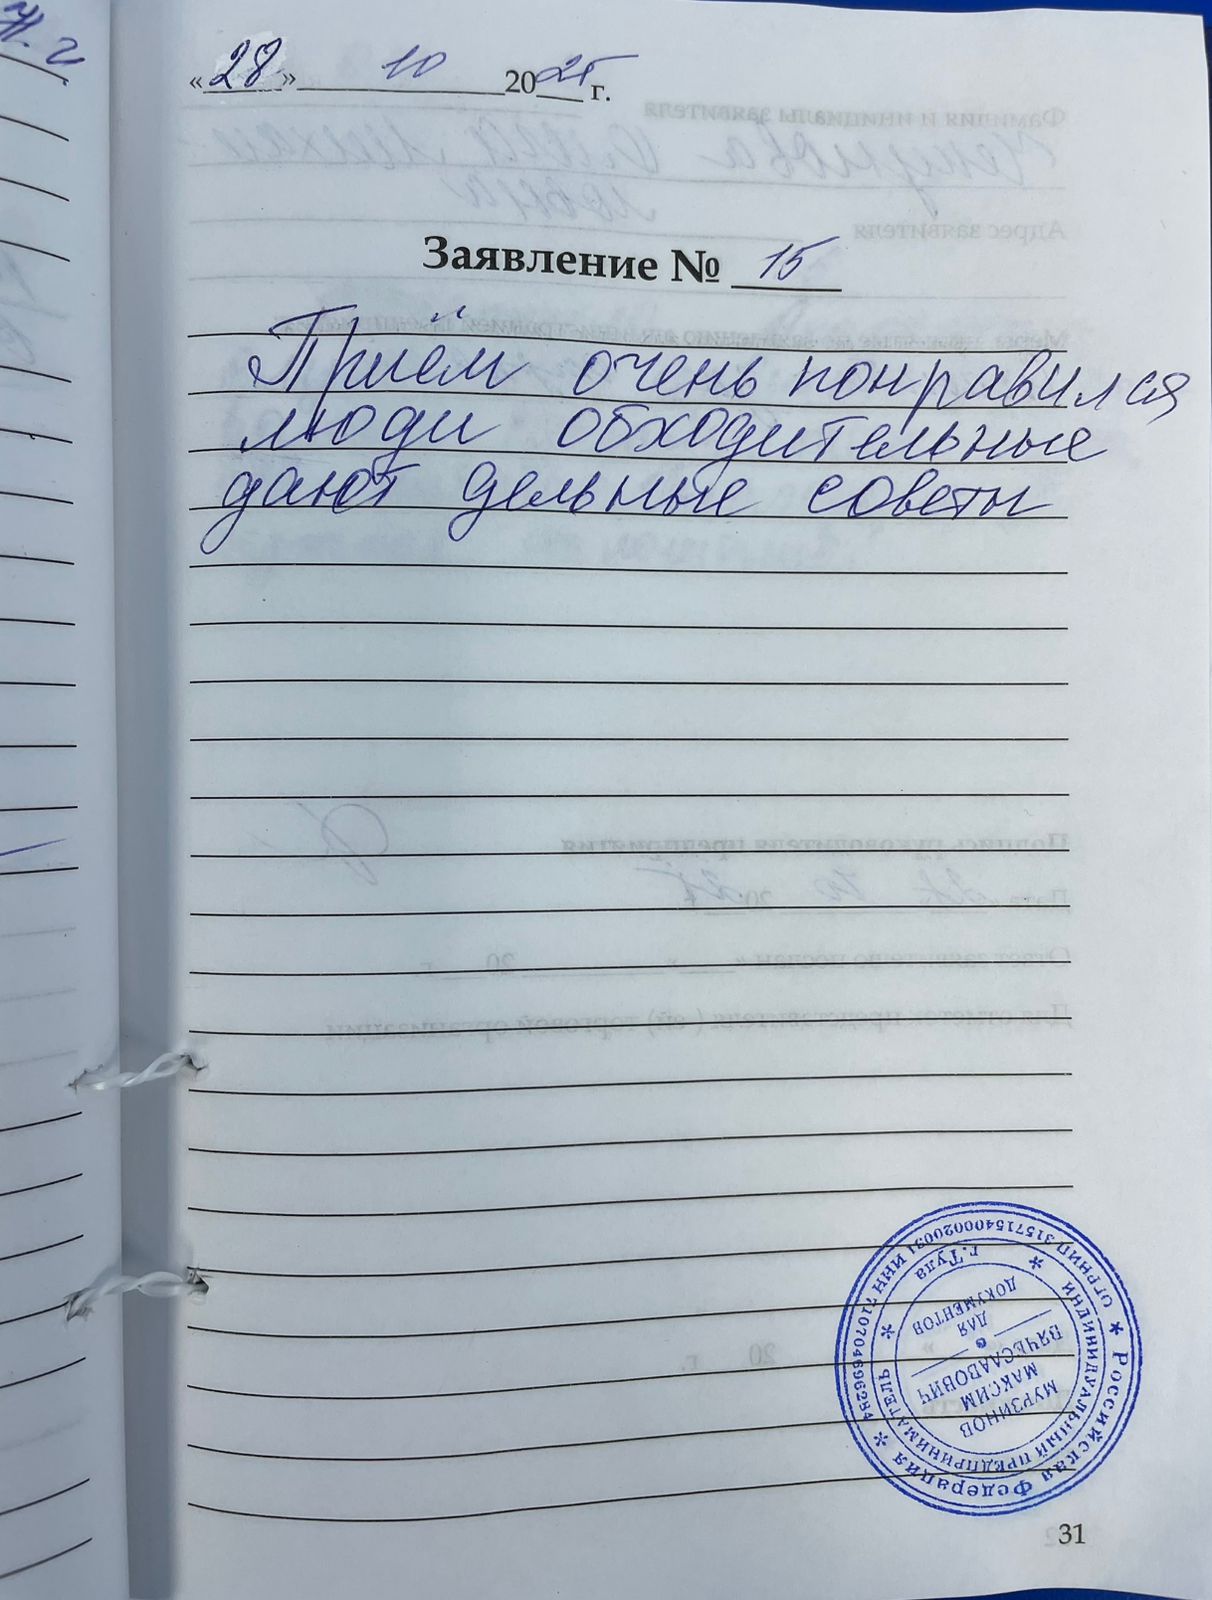 «28» 10 2025 г.
Заявление № 15
Приём очень понравился
люди обходительные
дают дельные советы
Российская Федерация
ИНДИВИДУАЛЬНЫЙ ПРЕДПРИНИМАТЕЛЬ
г. Тула
МУРЗИНОВ
МАКСИМ
ВЯЧЕСЛАВОВИЧ
ДЛЯ
ДОКУМЕНТОВ
31